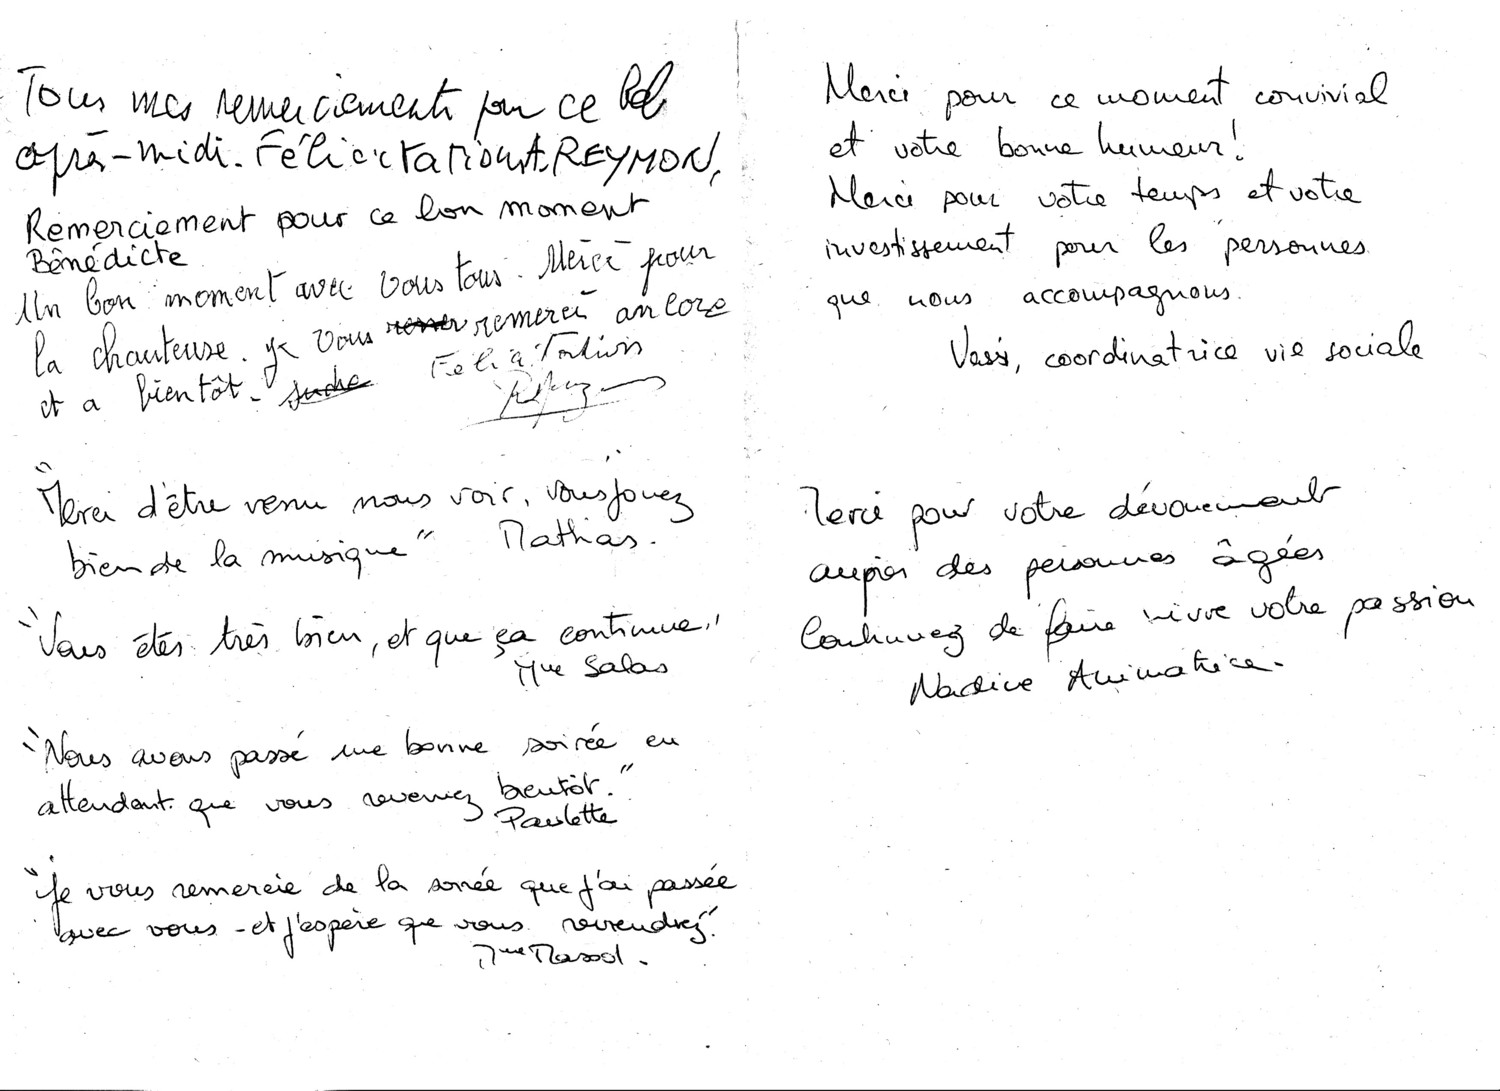 Tous mes remerciements pour ce bel
après-midi. Félicitations A. REYMON,
Remerciement pour ce bon moment
Bénédicte
Un bon moment avec vous tous. Merci pour
la chanteuse. je vous remerci ancore
et a bientôt.
Félicitations
"Merci d'être venu nous voir, vous jouez
bien de la musique" Mathias.
"Vous êtes très bien, et que ça continue"
Mme Salas
"Nous avons passé une bonne soirée en
attendant que vous reveniez bientôt."
Paulette
"Je vous remercie de la soirée que j'ai passée
avec vous - et j'espère que vous reviendrez"
Mme
Merci pour ce moment convivial
et votre bonne humeur!
Merci pour votre temps et votre
investissement pour les personnes
que nous accompagnons.
coordinatrice vie sociale
Merci pour votre dévouement
auprès des personnes âgées
Continuez de faire vivre votre passion
Nadine Animatrice.